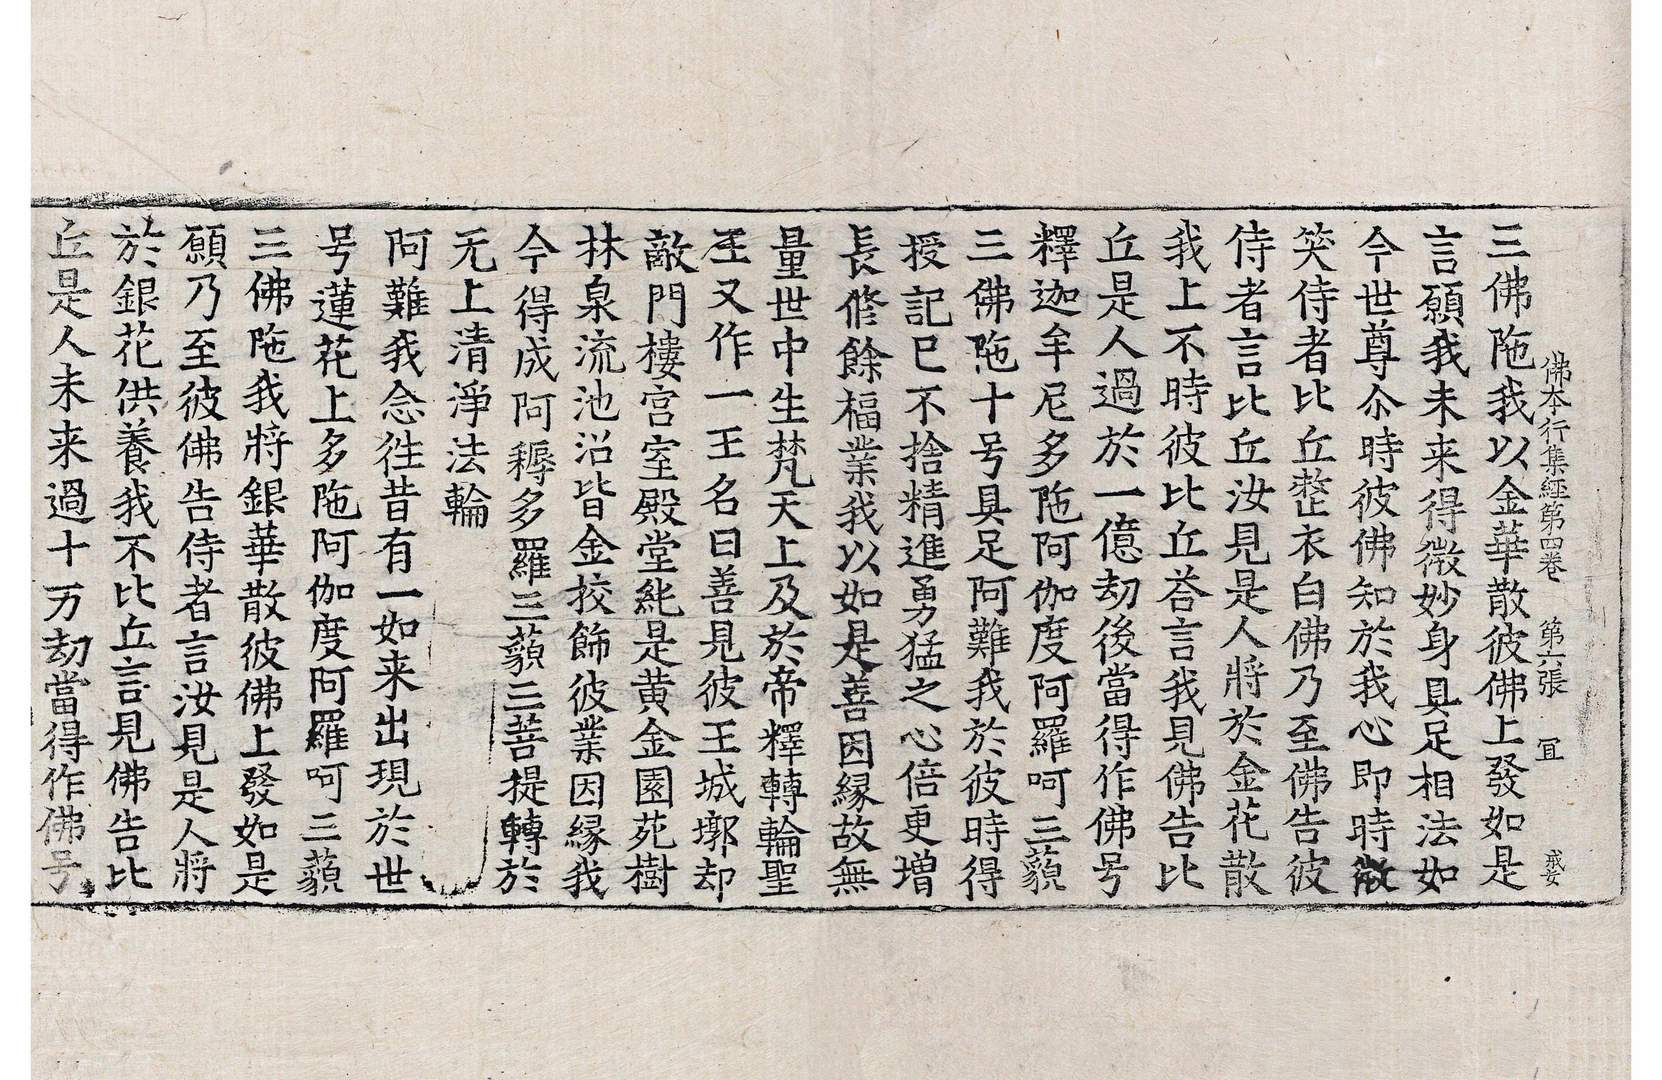 佛本行集經第四卷 第六張 冝 戒安
三佛陁我以金華散彼佛上發如是
言願我未来得微妙身具足相法如
今世尊尒時彼佛知於我心即時微
笑侍者比丘整衣白佛乃至佛告彼
侍者言比丘汝見是人將於金花散
我上不時彼比丘荅言我見佛告比
丘是人過於一億劫後當得作佛号
釋迦牟尼多陁阿伽度阿羅呵三藐
三佛陁十号具足阿難我於彼時得
授記已不捨精進勇猛之心倍更增
長修餘福業我以如是善因緣故無
量世中生梵天上及於帝釋轉輪聖
王又作一王名曰善見彼王城墎却
敵門樓宮室殿堂純是黄金園苑樹
林泉流池沼皆金挍飾彼業因緣我
今得成阿耨多羅三藐三菩提轉於
无上清淨法輪
阿難我念徃昔有一如来出現於世
号蓮花上多陁阿伽度阿羅呵三藐
三佛陁我將銀華散彼佛上發如是
願乃至彼佛告侍者言汝見是人將
於銀花供養我不比丘言見佛告比
丘是人未来過十万劫當得作佛号